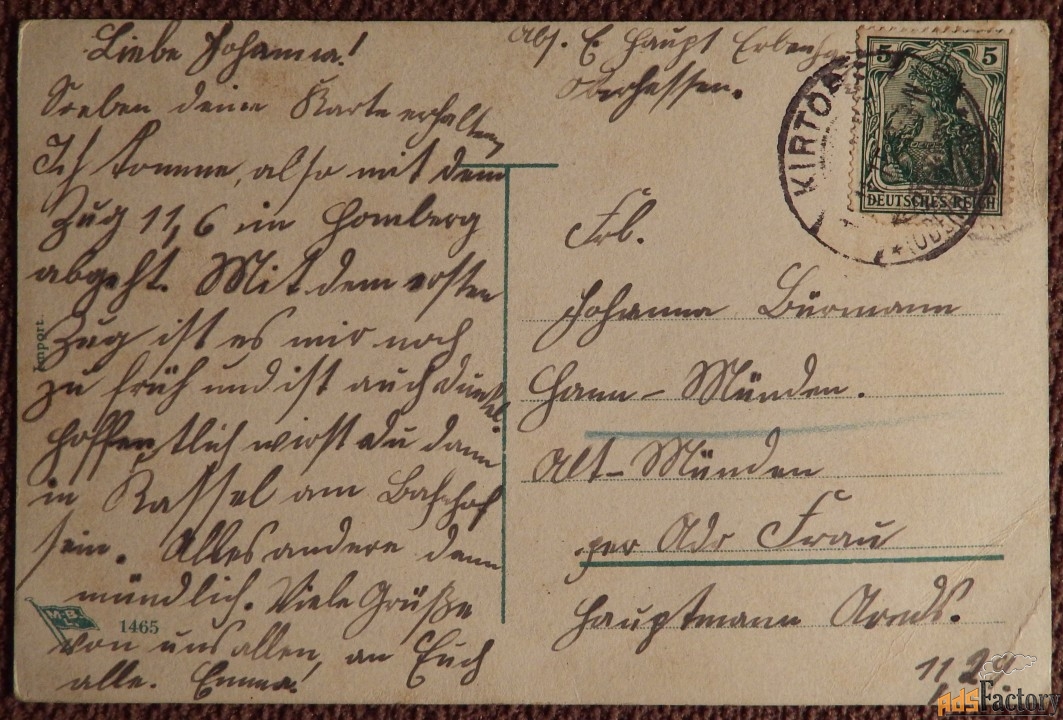 Liebe Johanna!
Soeben deine Karte erhalten,
Ich komme, also mit dem
Zug 11,6 im Homberg
abgeht. Mit dem ersten
Zug ist es mir noch
zu früh und ist auch dunkel.
Hoffentlich wirst du dann
in Kassel am Bahnhof
sein. Alles andere dann
mündlich. Viele Grüße
von uns allen, an Euch
alle. Emma!
Import
M.B.
1465
Abs. E. Haupt
Oberhessen.
5 5
DEUTSCHES REICH
KIRTO
Frl.
Johanna Bürmann
Hann-Münden.
Alt-Münden
per Adr Frau
Hauptmann
11
AdsFactory